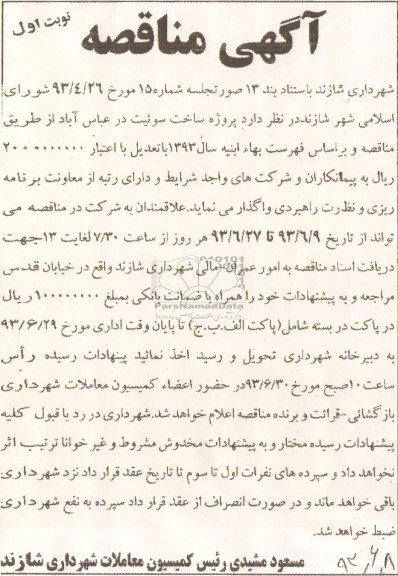 آگهی مناقصه
نوبت اول
شهرداری شازند باستناد بند ۱۳ صورتجلسه شماره۱۵ مورخ ۹۳/۴/۲۶ شورای
اسلامی شهر شازنددر نظر دارد پروژه ساخت سوئیت در عباس آباد از طریق
مناقصه و براساس فهرست بهاء ابنیه سال۱۳۹۳باتعدیل با اعتبار ۲۰۰۰۰۰۰۰۰۰
ریال به پیمانکاران و شرکت های واجد شرایط و دارای رتبه از معاونت برنامه
ریزی و نظارت راهبردی واگذار می نماید.علاقمندان به شرکت در مناقصه می
تواند از تاریخ ۹۳/۶/۹ تا ۹۳/۶/۲۷ هر روز از ساعت ۷/۳۰ لغایت ۱۳جهت
دریافت اسناد مناقصه به امور عمران-مالی شهرداری شازند واقع در خیابان قدس
مراجعه و به پیشنهادات خود را همراه با ضمانت بانکی بمبلغ ۱۰۰۰۰۰۰۰۰ ریال
در پاکت در بسته شامل(پاکت الف.ب.ج) تا پایان وقت اداری مورخ ۹۳/۶/۲۹
به دبیرخانه شهرداری تحویل و رسید اخذ نمائید پینهادات رسیده رأس
ساعت۱۰صبح مورخ ۹۳/۶/۳۰در حضور اعضاء کمیسیون معاملات شهرداری
بازگشائی-قرائت و برنده مناقصه اعلام خواهد شد.شهرداری در رد یا قبول کلیه
پیشنهادات رسیده مختار و به پیشنهادات مخدوش مشروط و غیر خوانا ترتیب اثر
نخواهد داد و سپرده های نفرات اول تا سوم تا تاریخ عقد قرار داد نزد شهرداری
باقی خواهد ماند و در صورت انصراف از عقد قرار داد سپرده به نفع شهرداری
ضبط خواهد شد.
مسعود مشیدی رئیس کمیسیون معاملات شهرداری شازند
۹۳/۶/۸
ParsNamadData